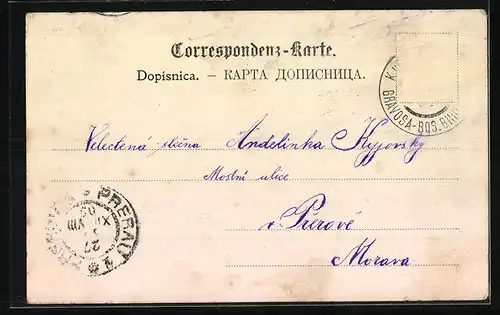 Correspondenz-Karte.
Dopisnica. – КАРТА ДОПИСНИЦА.
GRAVOSA-BOS. BROD
Veledena slečna Andelinka Kyjovsky
Mostní ulice
v Přerově
Morava
PRERAU
27
XI
VIII